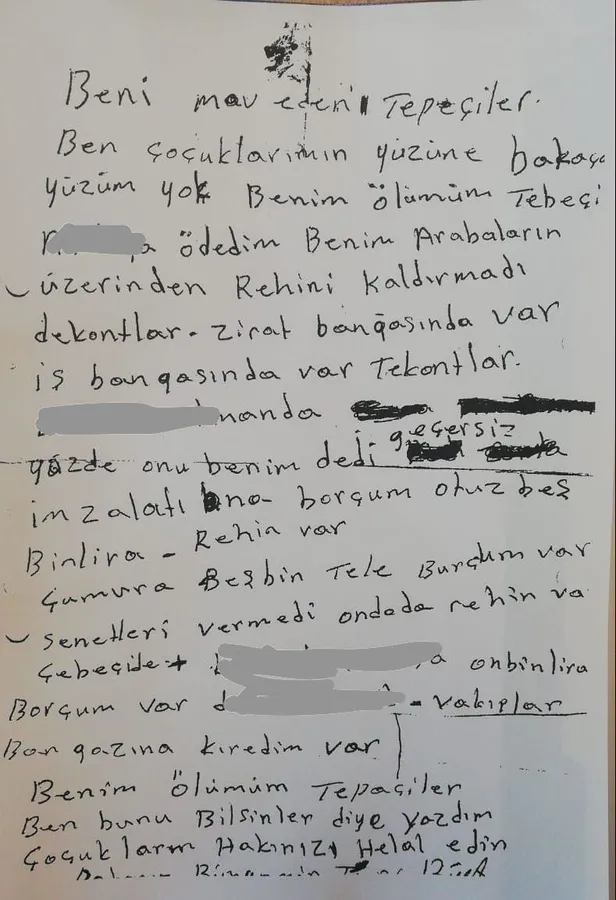 Beni mav eden Tepeçiler.
Ben çoçuklarımın yüzüne bakaça
yüzüm yok Benim ölümüm Tebeçi
ödedim Benim Arabaların
üzerinden Rehini kaldırmadı
dekontlar. zirat banqasında var
iş banqasında var Tekontlar.
geçersiz
yüzde onu benim dedi
imzalatı ona borçum otuz beş
Binlira - Rehin var
Çumura Beşbin Tele Burçum var
senetleri vermedi ondada rehin va
Çebeçide + onbinlira
Borçum var - vakıplar
Banqazına kıredim var
Benim ölümüm Tepaçiler
Ben bunu Bilsinler diye yazdım
Çoçuklarım Hakınızı Helal edin